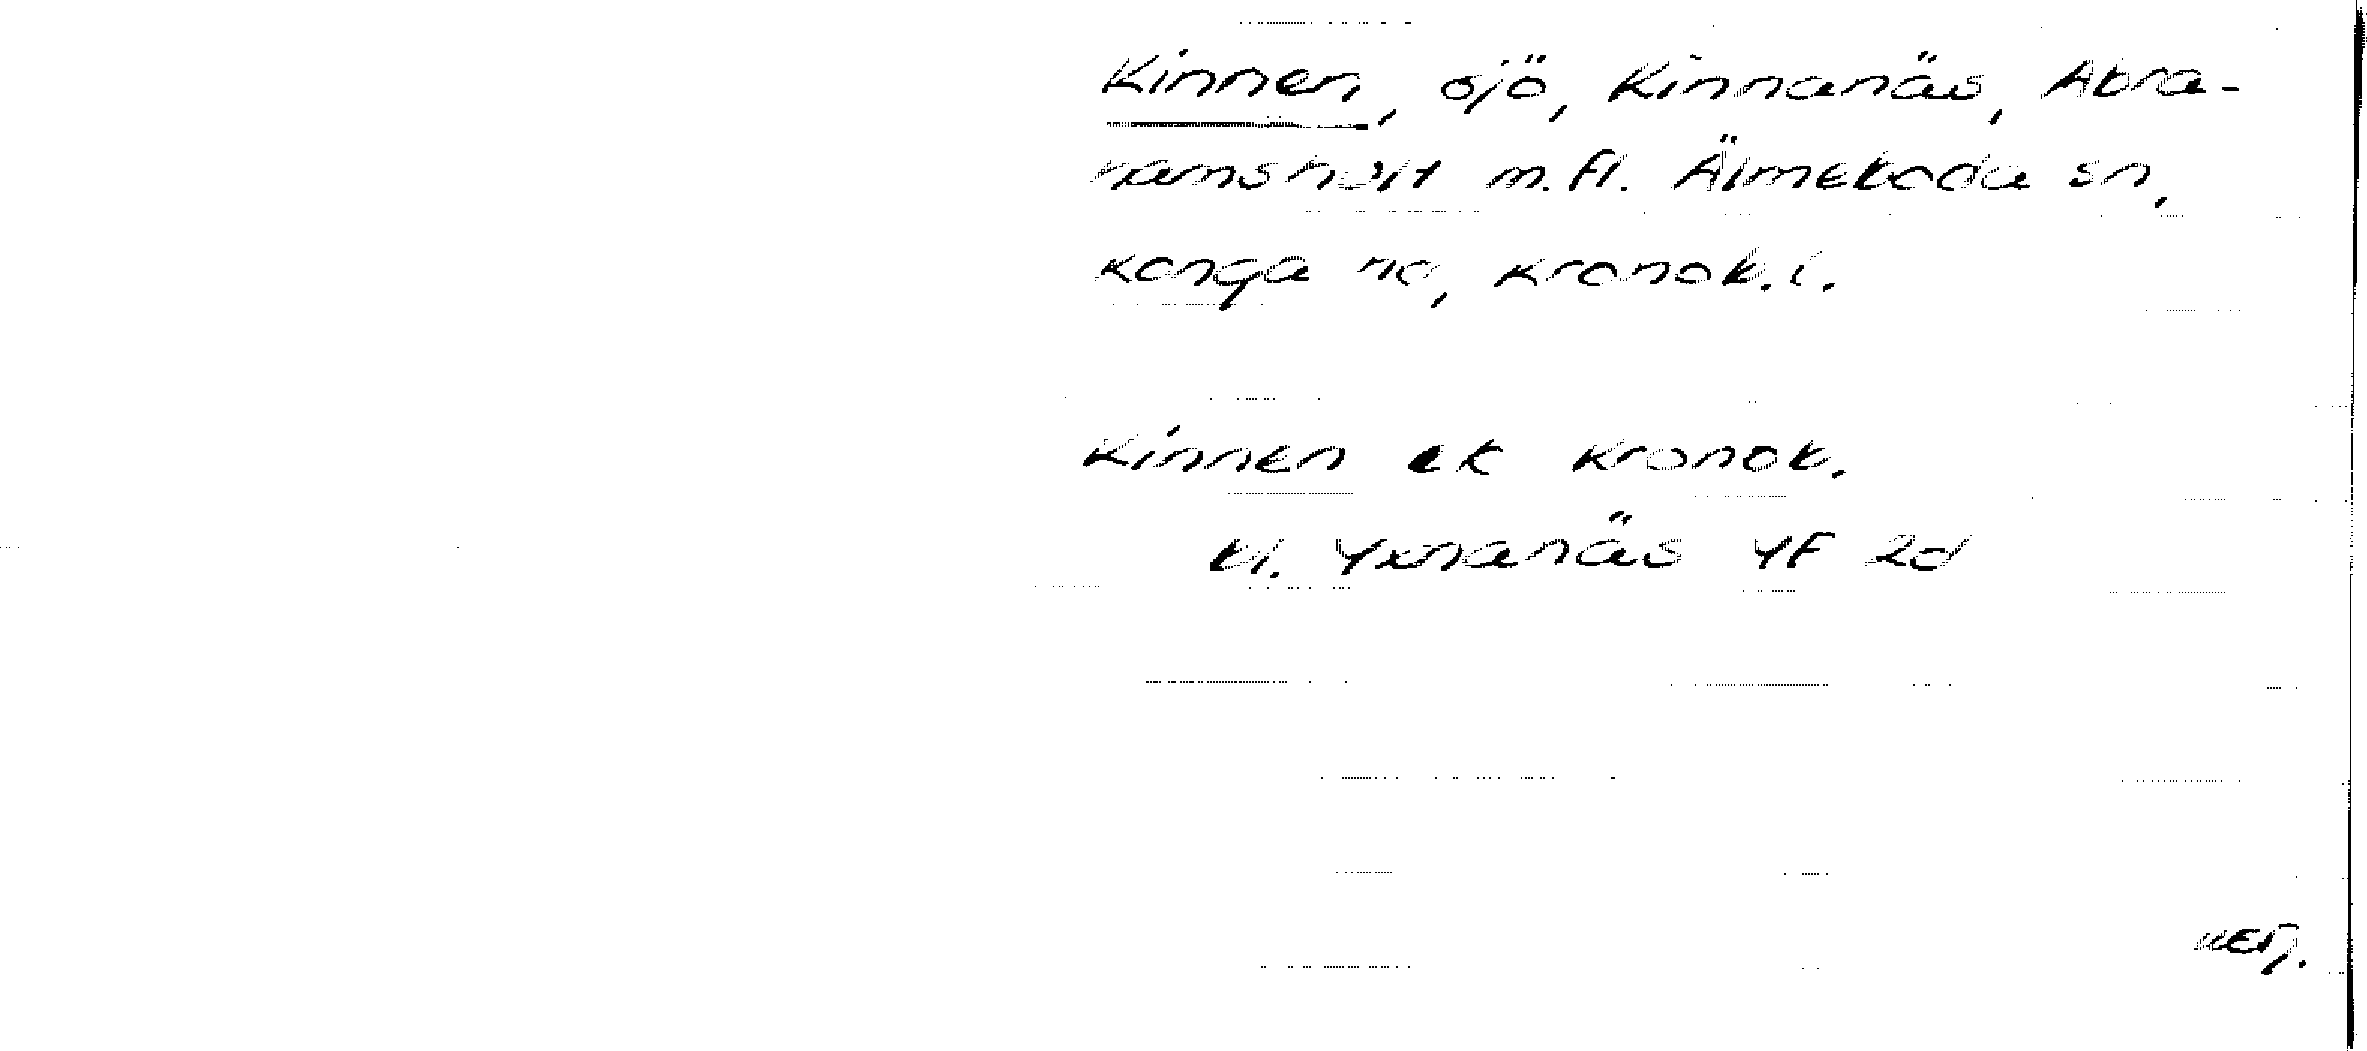 Kinnen, sjö, Kinnanäs, Abra-
hamshult m.fl. Älmeboda sn,
Konga hd, Kronob.l.
Kinnen ek Kronob.
bl. Yxnanäs 4F 2d